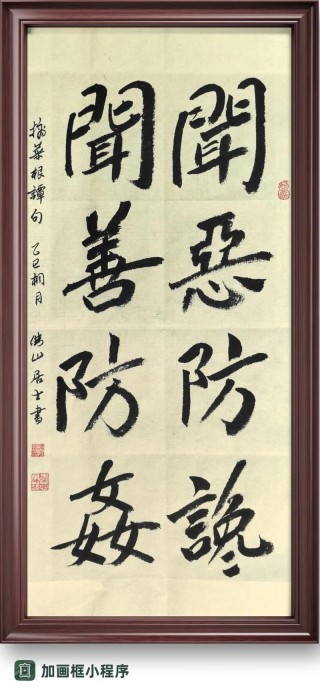 聞惡防讒
聞善防姦
摘菜根譚句 乙巳桐月 山居士書
加画框小程序